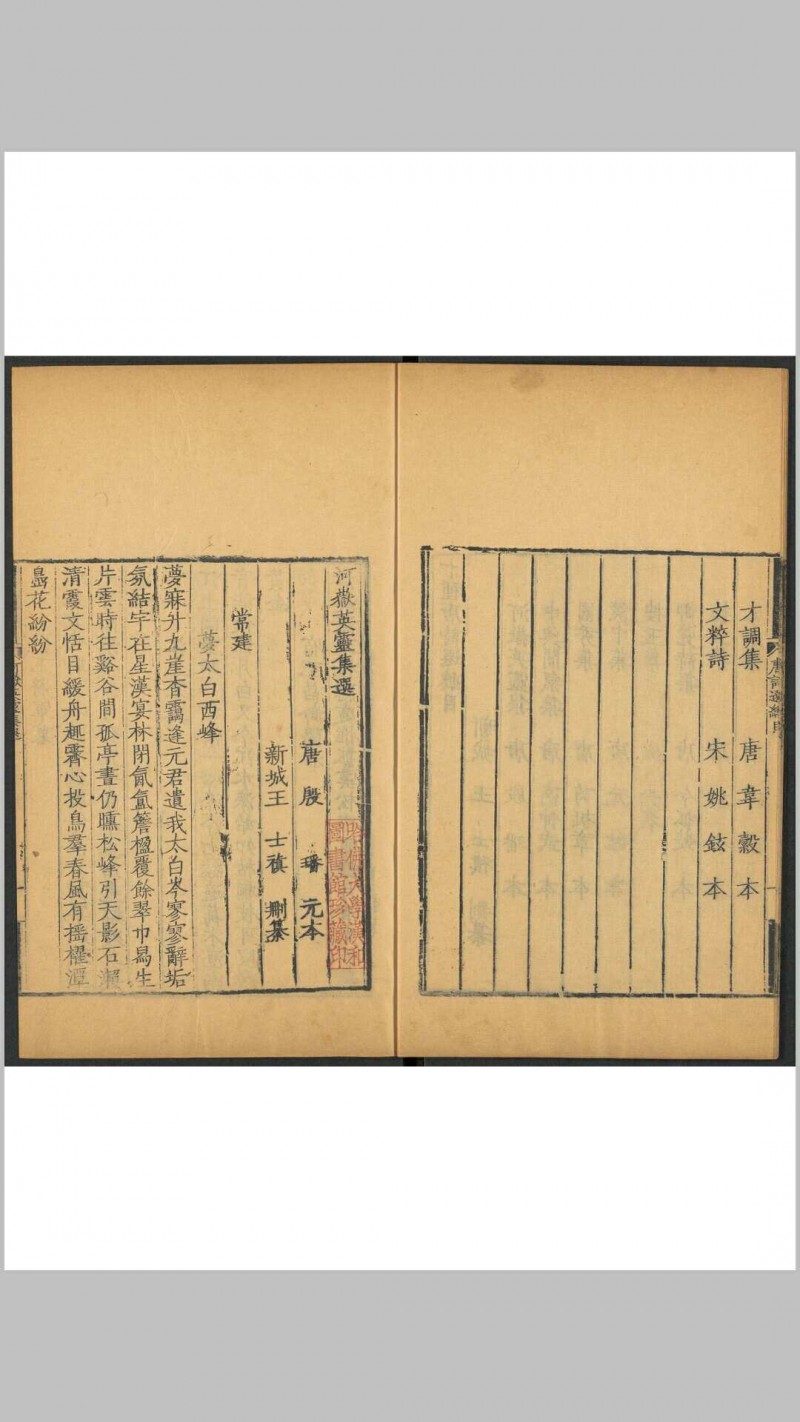 才調集 唐 韋 縠 本
文粹詩 宋 姚 鉉 本
河嶽英靈集選
唐 殷 璠 元本
新城王 士禛 刪纂
常建
夢太白西峰
夢寐升九崖杳靄逢元君遺我太白岑寥寥辭垢
氛結宇在星漢宴林閉氤氳簷楹覆餘翠巾舄生
片雲時往谿谷間孤亭晝仍曛松峰引天影石瀨
清霞文恬目緩舟趣霽心投鳥羣春風有摇櫂潭
島花紛紛
哈佛大學漢和
圖書館珍藏印